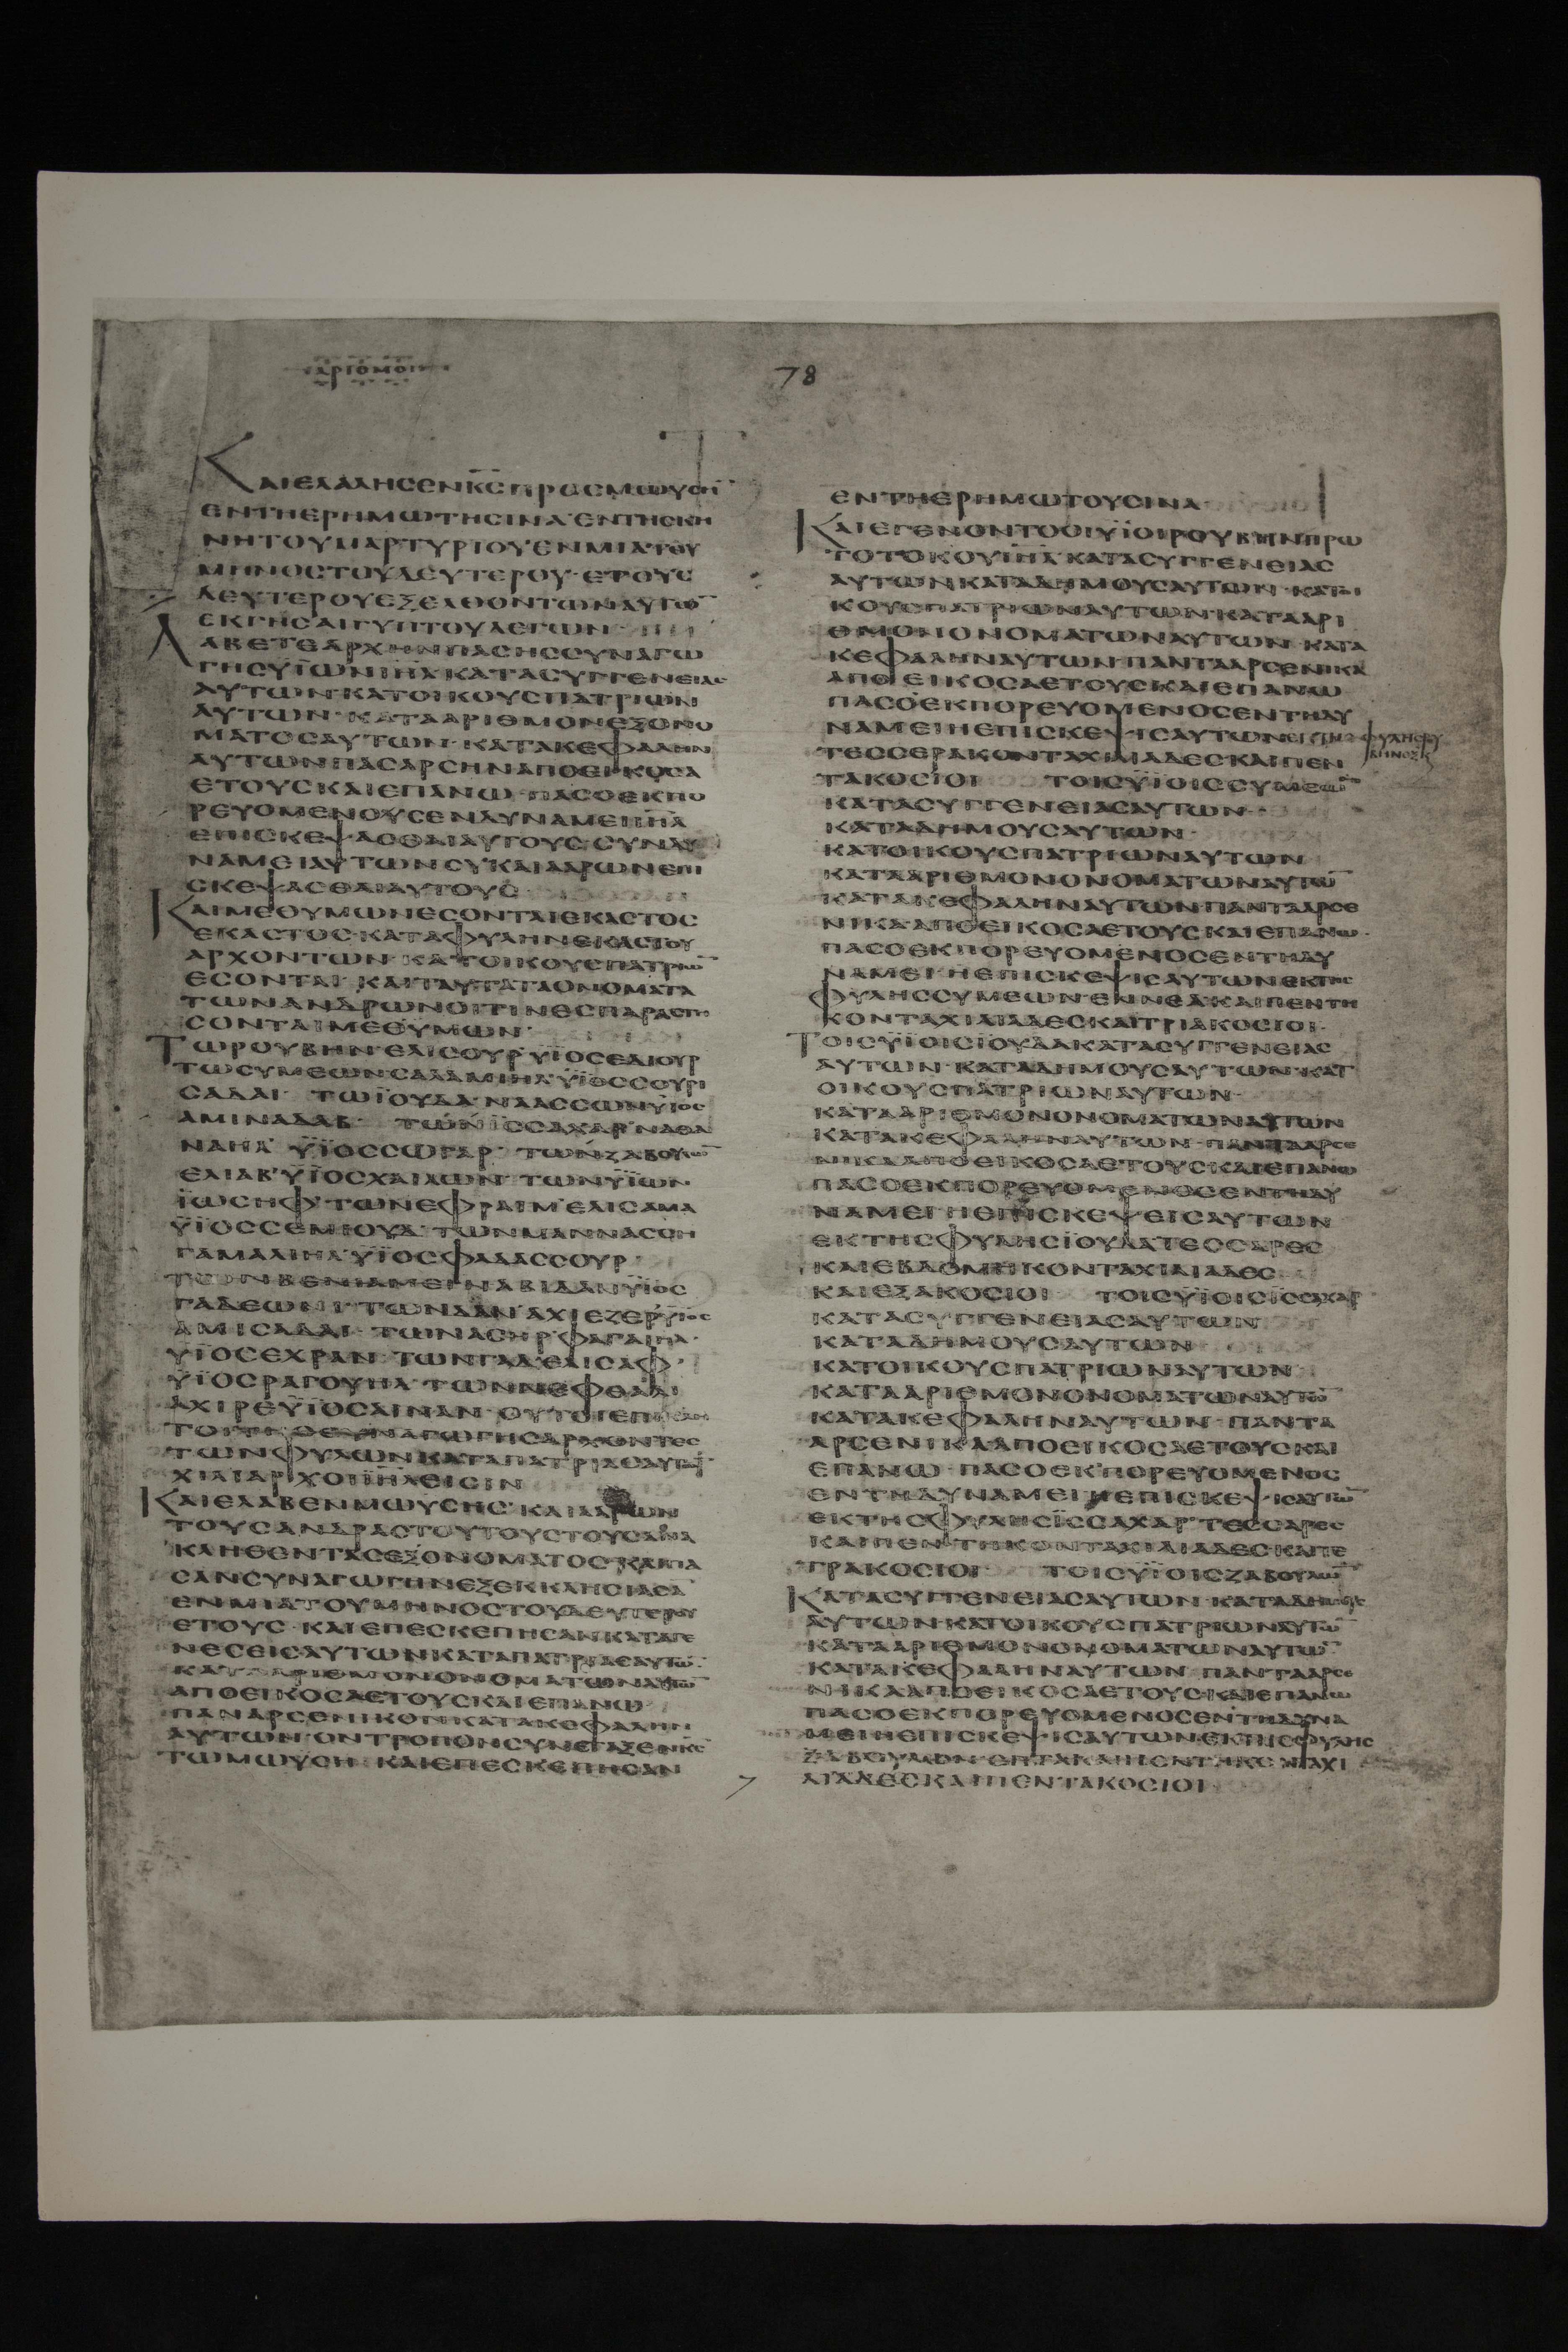 ΑΡΙΘΜΟΙ
78
ΚΑΙΕΛΑΛΗΣΕΝΚ̅Σ̅ΠΡΟΣΜΩΥΣΗ̅
ΕΝΤΗΕΡΗΜΩΤΗΣΙΝΑ·ΕΝΤΗΣΚΗ
ΝΗΤΟΥΜΑΡΤΥΡΙΟΥΕΝΜΙΑΤΟΥ
ΜΗΝΟΣΤΟΥΔΕΥΤΕΡΟΥ·ΕΤΟΥΣ
ΔΕΥΤΕΡΟΥΕΞΕΛΘΟΝΤΩΝΑΥΤΩ̅
ΕΚΓΗΣΑΙΓΥΠΤΟΥΛΕΓΩΝ
ΛΑΒΕΤΕΑΡΧΗΝΠΑΣΗΣΣΥΝΑΓΩ
ΓΗΣΫΙΩΝΙΗ̅Λ̅ΚΑΤΑΣΥΓΓΕΝΕΙΑΣ
ΑΥΤΩΝ·ΚΑΤΟΙΚΟΥΣΠΑΤΡΙΩΝ
ΑΥΤΩΝ·ΚΑΤΑΑΡΙΘΜΟΝΕΞΟΝΟ
ΜΑΤΟΣΑΥΤΩΝ·ΚΑΤΑΚΕΦΑΛΗΝ
ΑΥΤΩΝΠΑΣΑΡΣΗΝΑΠΟΕΙΚΟΣΑ
ΕΤΟΥΣΚΑΙΕΠΑΝΩ·ΠΑΣΟΕΚΠΟ
ΡΕΥΟΜΕΝΟΥΣΕΝΔΥΝΑΜΕΙΙΗ̅Λ̅
ΕΠΙΣΚΕΨΑΣΘΑΙΑΥΤΟΥΣΣΥΝΔΥ
ΝΑΜΕΙΑΥΤΩΝΣΥΚΑΙΑΑΡΩΝΕΠΙ
ΣΚΕΨΑΣΘΑΙΑΥΤΟΥΣ
ΚΑΙΜΕΘΥΜΩΝΕΣΟΝΤΑΙΕΚΑΣΤΟΣ
ΕΚΑΣΤΟΣ·ΚΑΤΑΦΥΛΗΝΕΚΑΣΤΟΥ
ΑΡΧΟΝΤΩΝ·ΚΑΤΟΙΚΟΥΣΠΑΤΡΙΩ̅
ΕΣΟΝΤΑΙ·ΚΑΙΤΑΥΤΑΤΑΟΝΟΜΑΤΑ
ΤΩΝΑΝΔΡΩΝΟΙΤΙΝΕΣΠΑΡΑΣΤΗ
ΣΟΝΤΑΙΜΕΘΥΜΩΝ·
ΤΩΡΟΥΒΗΝ·ΕΛΙΣΟΥΡ·ΫΙΟΣΕΔΙΟΥΡ
ΤΩΣΥΜΕΩΝ·ΣΑΛΑΜΙΗΛ·ΫΙΟΣΣΟΥΡΙ
ΣΑΔΑΙ· ΤΩΪΟΥΔΑ·ΝΑΑΣΣΩΝΥΙΟΣ
ΑΜΙΝΑΔΑΒ· ΤΩΝΪΣΣΑΧΑΡ·ΝΑΘΑ
ΝΑΗΛ· ΫΙΟΣΣΩΓΑΡ· ΤΩΝΖΑΒΟΥΛΩ̅
ΕΛΙΑΒ·ΫΙΟΣΧΑΙΛΩΝ· ΤΩΝΫΙΩΝ
ΪΩΣΗΦ·ΤΩΝΕΦΡΑΙΜ·ΕΛΙΣΑΜΑ
ΫΙΟΣΣΕΜΙΟΥΔ·ΤΩΝΜΑΝΝΑΣΣΗ
ΓΑΜΑΛΙΗΛ·ΫΙΟΣΦΑΔΑΣΣΟΥΡ·
ΤΩΝΒΕΝΙΑΜΕΙΝΑΒΙΔΑΝΫΙΟΣ
ΓΑΔΕΩΝΙ·ΤΩΝΔΑΝ·ΑΧΙΕΖΕΡ·ΫΙΟΣ
ΑΜΙΣΑΔΑΙ·ΤΩΝΑΣΗΡ·ΦΑΓΑΙΗΛ·
ΥΙΟΣΕΧΡΑΝ·ΤΩΝΓΑΔ·ΕΛΙΣΑΦ·
ΫΙΟΣΡΑΓΟΥΗΛ·ΤΩΝΝΕΦΘΑΛΙ
ΑΧΙΡΕ·ΫΙΟΣΑΙΝΑΝ·ΟΥΤΟΙΕΠΙΚΛΗ
ΤΟΙΤΗΣΣΥΝΑΓΩΓΗΣΑΡΧΟΝΤΕΣ
ΤΩΝΦΥΛΩΝΚΑΤΑΠΑΤΡΙΑΣΑΥΤΩ̅·
ΧΙΛΙΑΡΧΟΙΙΗ̅Λ̅ΕΙΣΙΝ
ΚΑΙΕΛΑΒΕΝΜΩΥΣΗΣ·ΚΑΙΑΑΡΩΝ
ΤΟΥΣΑΝΔΡΑΣΤΟΥΤΟΥΣΤΟΥΣΑΝΑ
ΚΛΗΘΕΝΤΑΣΕΞΟΝΟΜΑΤΟΣ·ΚΑΙΠΑ
ΣΑΝΣΥΝΑΓΩΓΗΝΕΞΕΚΚΛΗΣΙΑΣΑ̅
ΕΝΜΙΑΤΟΥΜΗΝΟΣΤΟΥΔΕΥΤΕΡΟΥ
ΕΤΟΥΣ·ΚΑΙΕΠΕΣΚΕΠΗΣΑΝΚΑΤΑΓΕ
ΝΕΣΕΙΣΑΥΤΩΝΚΑΤΑΠΑΤΡΙΑΣΑΥΤΩ̅·
ΚΑΤΑΑΡΙΘΜΟΝΟΝΟΜΑΤΩΝΑΥΤΩ̅
ΑΠΟΕΙΚΟΣΑΕΤΟΥΣΚΑΙΕΠΑΝΩ
ΠΑΝΑΡΣΕΝΙΚΟΝΚΑΤΑΚΕΦΑΛΗΝ
ΑΥΤΩΝ·ΟΝΤΡΟΠΟΝΣΥΝΕΤΑΞΕΝΚ̅Σ̅
ΤΩΜΩΥΣΗ·ΚΑΙΕΠΕΣΚΕΠΗΣΑΝ
ΕΝΤΗΕΡΗΜΩΤΟΥΣΙΝΑ
ΚΑΙΕΓΕΝΟΝΤΟΟΙΫΙΟΙΡΟΥΒΗΝΠΡΩ
ΤΟΤΟΚΟΥΙΗ̅Λ̅·ΚΑΤΑΣΥΓΓΕΝΕΙΑΣ
ΑΥΤΩΝΚΑΤΑΔΗΜΟΥΣΑΥΤΩΝ·ΚΑΤΟΙ
ΚΟΥΣΠΑΤΡΙΩΝΑΥΤΩΝ·ΚΑΤΑΑΡΙ
ΘΜΟΝΟΝΟΜΑΤΩΝΑΥΤΩΝ·ΚΑΤΑ
ΚΕΦΑΛΗΝΑΥΤΩΝ·ΠΑΝΤΑΑΡΣΕΝΙΚΑ
ΑΠΟΕΙΚΟΣΑΕΤΟΥΣΚΑΙΕΠΑΝΩ
ΠΑΣΟΕΚΠΟΡΕΥΟΜΕΝΟΣΕΝΤΗΔΥ
ΝΑΜΕΙΗΕΠΙΣΚΕΨΙΣΑΥΤΩΝ
ΤΕΣΣΕΡΑΚΟΝΤΑΧΙΛΙΑΔΕΣΚΑΙΠΕΝ
ΤΑΚΟΣΙΟΙ ΤΟΙΣΫΙΟΙΣΣΥΜΕΩ̅
ΚΑΤΑΣΥΓΓΕΝΕΙΑΣΑΥΤΩΝ·
ΚΑΤΑΔΗΜΟΥΣΑΥΤΩΝ·
ΚΑΤΟΙΚΟΥΣΠΑΤΡΙΩΝΑΥΤΩΝ
ΚΑΤΑΑΡΙΘΜΟΝΟΝΟΜΑΤΩΝΑΥΤΩ̅
ΚΑΤΑΚΕΦΑΛΗΝΑΥΤΩΝ·ΠΑΝΤΑΑΡΣΕ
ΝΙΚΑ·ΑΠΟΕΙΚΟΣΑΕΤΟΥΣΚΑΙΕΠΑΝΩ·
ΠΑΣΟΕΚΠΟΡΕΥΟΜΕΝΟΣΕΝΤΗΔΥ
ΝΑΜΕΙΗΕΠΙΣΚΕΨΙΣΑΥΤΩΝΕΚΤΗΣ
ΦΥΛΗΣΣΥΜΕΩΝ·ΕΝΝΕΑΚΑΙΠΕΝΤΗ
ΚΟΝΤΑΧΙΛΙΑΔΕΣΚΑΙΤΡΙΑΚΟΣΙΟΙ·
ΤΟΙΣΫΙΟΙΣΪΟΥΔΑΚΑΤΑΣΥΓΓΕΝΕΙΑΣ
ΑΥΤΩΝ·ΚΑΤΑΔΗΜΟΥΣΑΥΤΩΝ·ΚΑΤ
ΟΙΚΟΥΣΠΑΤΡΙΩΝΑΥΤΩΝ·
ΚΑΤΑΑΡΙΘΜΟΝΟΝΟΜΑΤΩΝΑΥΤΩΝ
ΚΑΤΑΚΕΦΑΛΗΝΑΥΤΩΝ·ΠΑΝΤΑΑΡΣΕ
ΝΙΚΑΑΠΟΕΙΚΟΣΑΕΤΟΥΣΚΑΙΕΠΑΝΩ
ΠΑΣΟΕΚΠΟΡΕΥΟΜΕΝΟΣΕΝΤΗΔΥ
ΝΑΜΕΙΗΕΠΙΣΚΕΨΕΙΣΑΥΤΩΝ
ΕΚΤΗΣΦΥΛΗΣΪΟΥΔΑΤΕΣΣΑΡΕΣ
ΚΑΙΕΒΔΟΜΗΚΟΝΤΑΧΙΛΙΑΔΕΣ
ΚΑΙΕΞΑΚΟΣΙΟΙ ΤΟΙΣΫΙΟΙΣΪΣΣΑΧΑΡ
ΚΑΤΑΣΥΓΓΕΝΕΙΑΣΑΥΤΩΝ
ΚΑΤΑΔΗΜΟΥΣΑΥΤΩΝ
ΚΑΤΟΙΚΟΥΣΠΑΤΡΙΩΝΑΥΤΩΝ
ΚΑΤΑΑΡΙΘΜΟΝΟΝΟΜΑΤΩΝΑΥΤΩ̅
ΚΑΤΑΚΕΦΑΛΗΝΑΥΤΩΝ·ΠΑΝΤΑ
ΑΡΣΕΝΙΚΑΑΠΟΕΙΚΟΣΑΕΤΟΥΣΚΑΙ
ΕΠΑΝΩ·ΠΑΣΟΕΚΠΟΡΕΥΟΜΕΝΟΣ
ΕΝΤΗΔΥΝΑΜΕΙΗΕΠΙΣΚΕΨΙΣΑΥΤΩ̅
ΕΚΤΗΣΦΥΛΗΣΪΣΣΑΧΑΡ·ΤΕΣΣΑΡΕΣ
ΚΑΙΠΕΝΤΗΚΟΝΤΑΧΙΛΙΑΔΕΣΚΑΙΤΕ
ΤΡΑΚΟΣΙΟΙ· ΤΟΙΣΫΙΟΙΣΖΑΒΟΥΛΩ̅
ΚΑΤΑΣΥΓΓΕΝΕΙΑΣΑΥΤΩΝ·ΚΑΤΑΔΗΜΟΥΣ
ΑΥΤΩΝ·ΚΑΤΟΙΚΟΥΣΠΑΤΡΙΩΝΑΥΤΩ̅
ΚΑΤΑΑΡΙΘΜΟΝΟΝΟΜΑΤΩΝΑΥΤΩ̅·
ΚΑΤΑΚΕΦΑΛΗΝΑΥΤΩΝ·ΠΑΝΤΑΑΡΣΕ
ΝΙΚΑΑΠΟΕΙΚΟΣΑΕΤΟΥΣΚΑΙΕΠΑΝΩ
ΠΑΣΟΕΚΠΟΡΕΥΟΜΕΝΟΣΕΝΤΗΔΥΝΑ
ΜΕΙΗΕΠΙΣΚΕΨΙΣΑΥΤΩΝΕΚΤΗΣΦΥΛΗΣ
ΖΑΒΟΥΛΩΝ·ΕΠΤΑΚΑΙΠΕΝΤΗΚΟΝΤΑΧΙ
ΛΙΑΔΕΣΚΑΙΠΕΝΤΑΚΟΣΙΟΙ